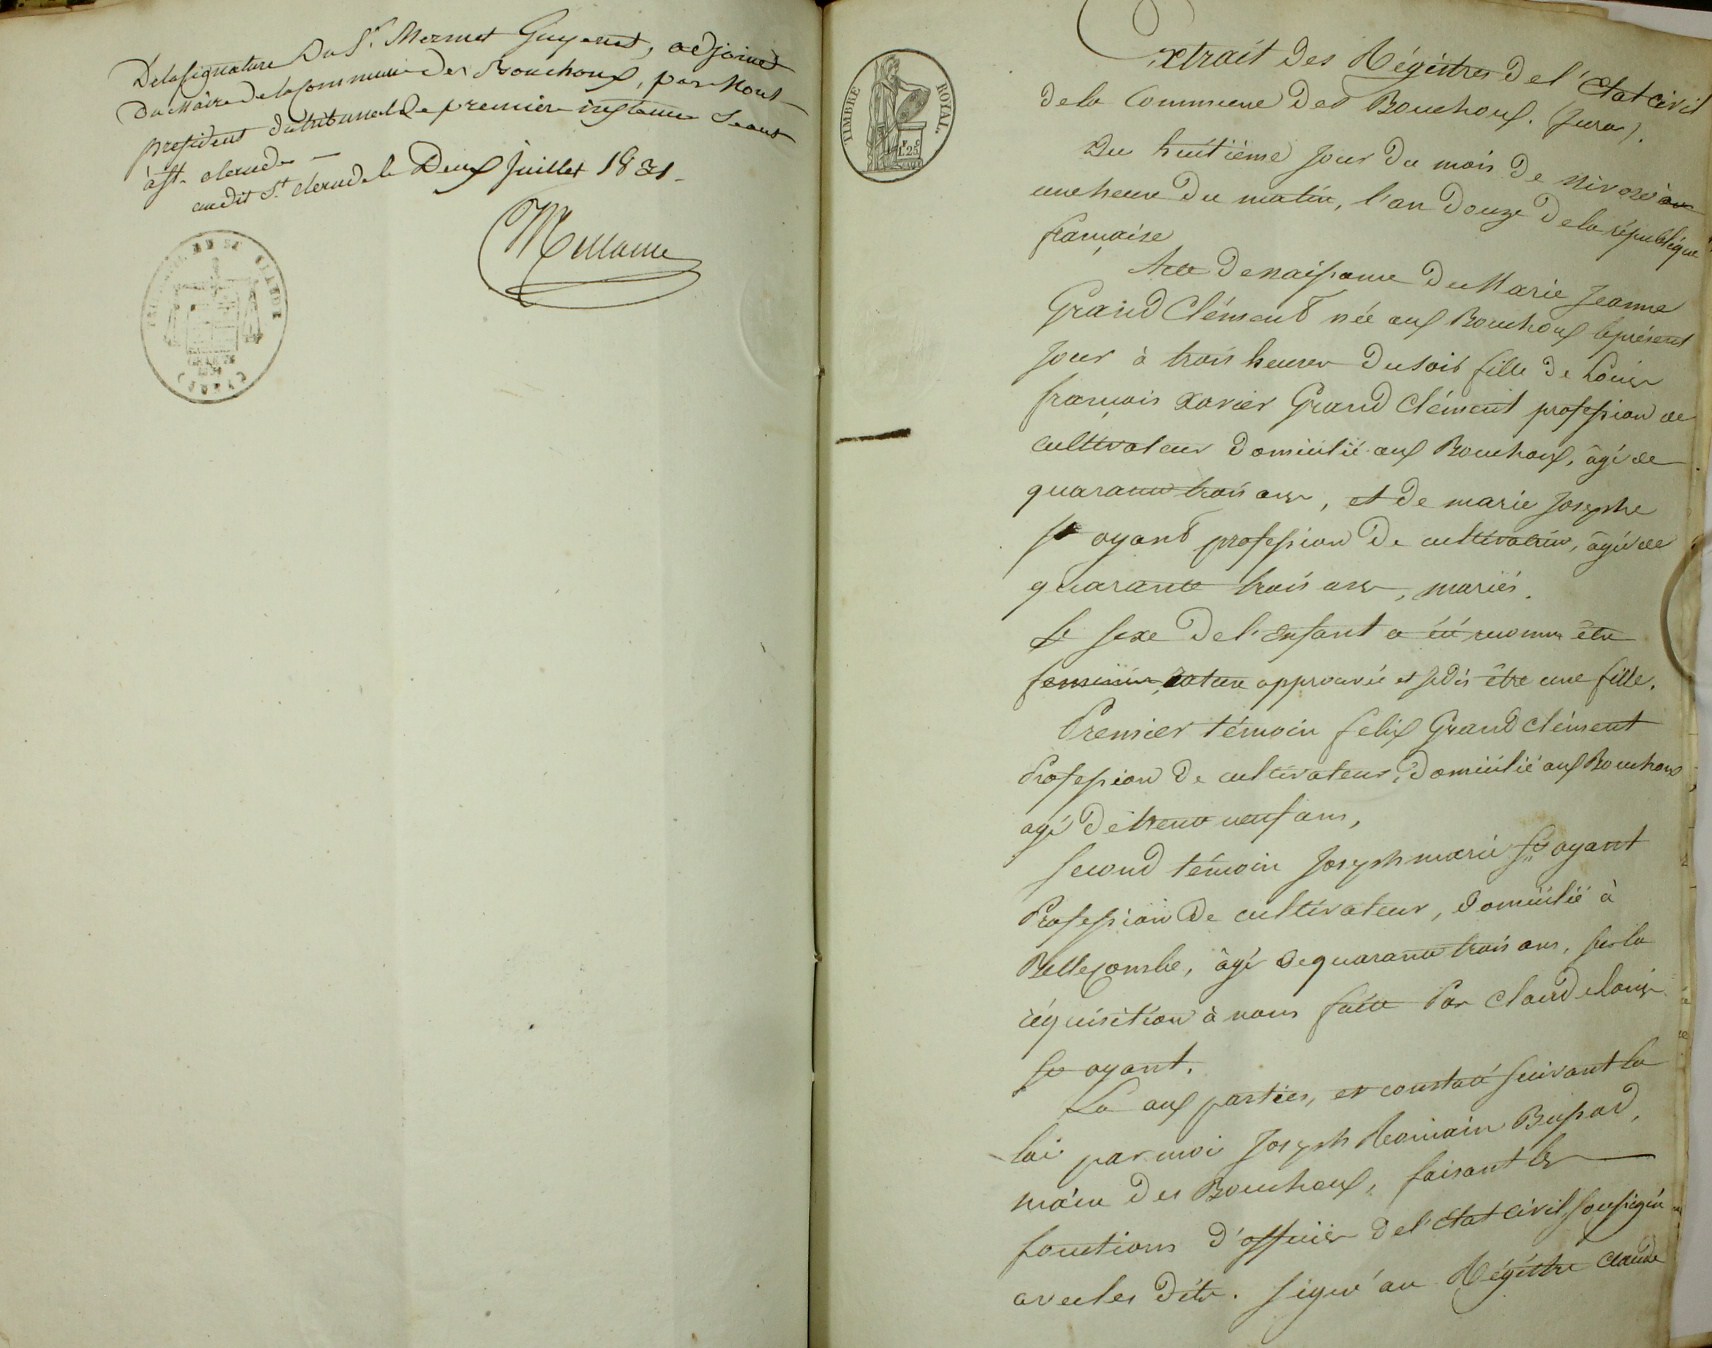 De la signature Du Sr. Mermet Guyenet, adjoint
Du Maire de la Commune des Bouchoux, par Nous
president du tribunal de premiere instance Seant
à St. claude
audit St. claude le Deux Juillet 1831
TIMBRE ROYAL.
Extrait Des Régistres De l'Etat civil
de la Commune Des Bouchoux. (Jura).
Du huitième jour du mois De nivose
une heure Du matin, l'an Douze De la république
française
Acte De naissance De Marie Jeanne
Grand Clément née aux Bouchoux le présent
jour à trois heures Du soir fille De Louis
françois Xavier Grand Clément profession de
cultivateur Domicilié aux Bouchoux, âgé de
quarante trois ans, et De marie Josephe
ayant profession De cultivatrice, âgée de
quarante trois ans, mariés.
Le sexe De l'enfant a été reconnu être
feminin, approuvée et être une fille.
Premier témoin felix Grand clément
Profession De cultivateur, Domicilié aux Bouchoux
agé De trente neuf ans,
second témoin Joseph marie ayant
Profession De cultivateur, Domicilié à
Bellecombe, âgé De quarante trois ans, sur la
réquisition à nous faite Par Claude Louis
ayant.
Lu aux parties, et constaté suivant la
loi par moi Joseph Romain Bussod,
maire Des Bouchoux, faisant les
fonctions D'officier De l'état civil, soussigné
avec les Dits. signé au Régistre Claude